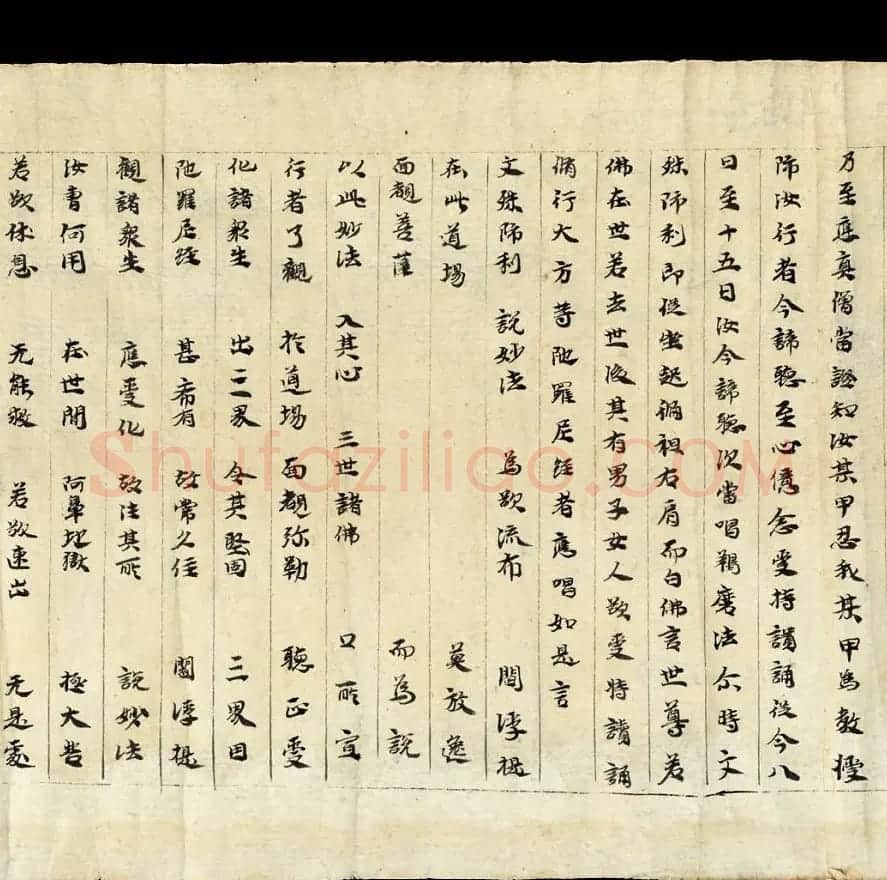 乃至應真僧當證知汝某甲忍我某甲為教授
師汝行者今諦聽至心憶念受持讀誦從今八
日至十五日汝今諦聽次當唱羯磨法尒時文
殊師利即從坐起徧袒右肩而白佛言世尊若
佛在世若去世後其有男子女人欲受持讀誦
脩行大方等陁羅尼經者應唱如是言
文殊師利 說妙法 為欲流布 閻浮提
在此道場 莫放逸
面覩菩薩 而為說
以此妙法 入其心 三世諸佛 口所宣
行者了觀 於道場 面覩弥勒 聽正受
化諸眾生 出三界 令其堅固 三界因
陁羅尼經 甚希有 故常久住 閻浮提
觀諸眾生 應受化 故注其所 說妙法
汝書何用 在世間 阿鼻地獄 極大苦
若欲休息 无能救 若欲速出 无是處
Shufaziliao.COM